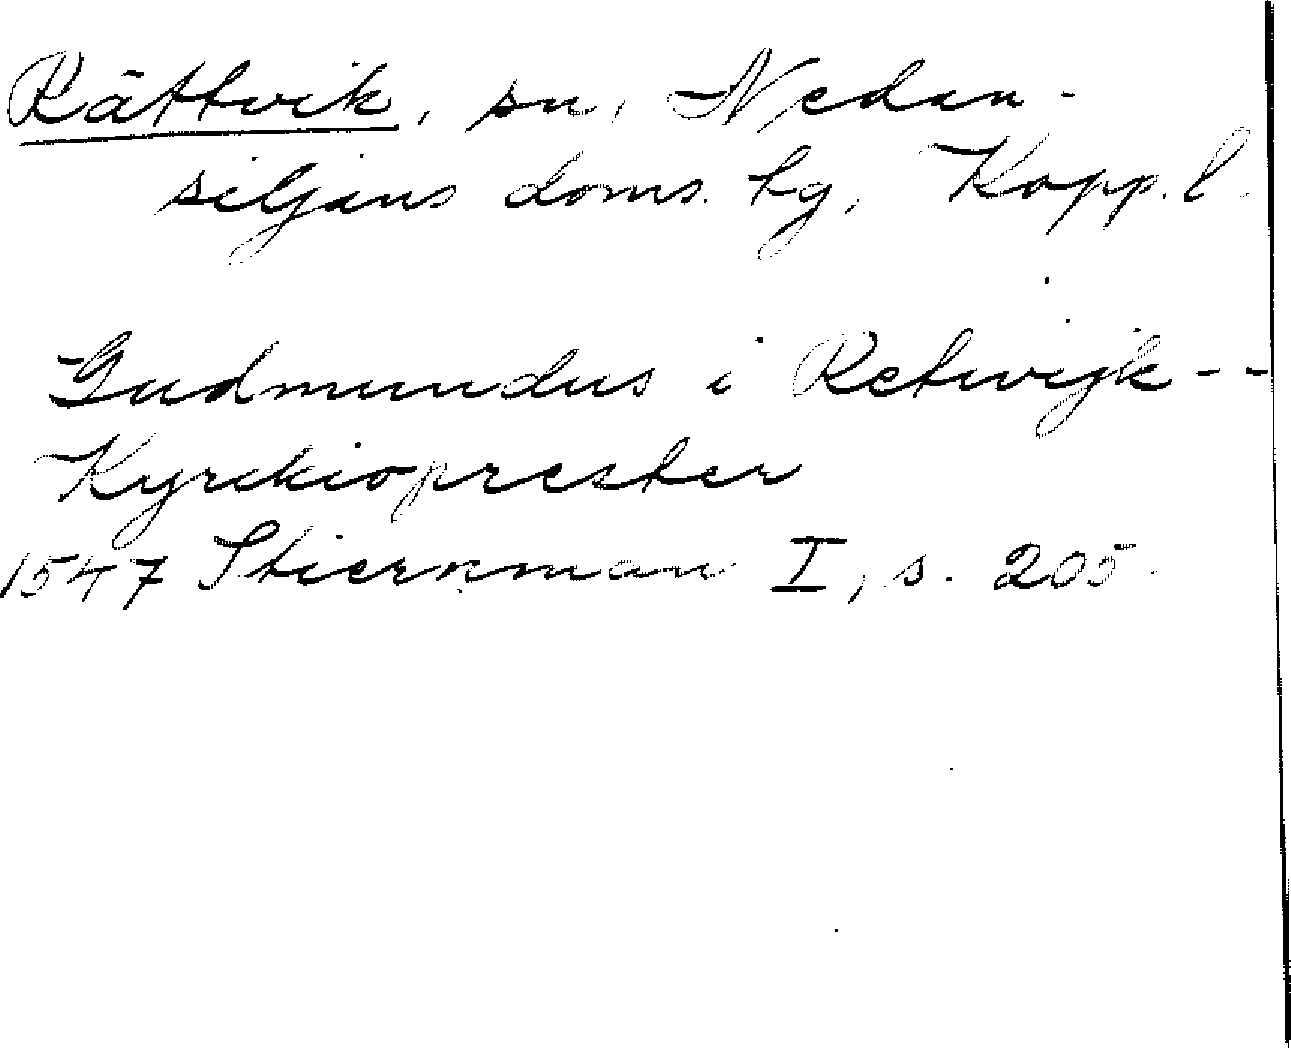 Rättvik, sn, Nedan-
siljans doms. hg, Kopp.l.
Gudmundus i Retwijk--
Kyrckioprester
1547 Stiernman I, s. 205.